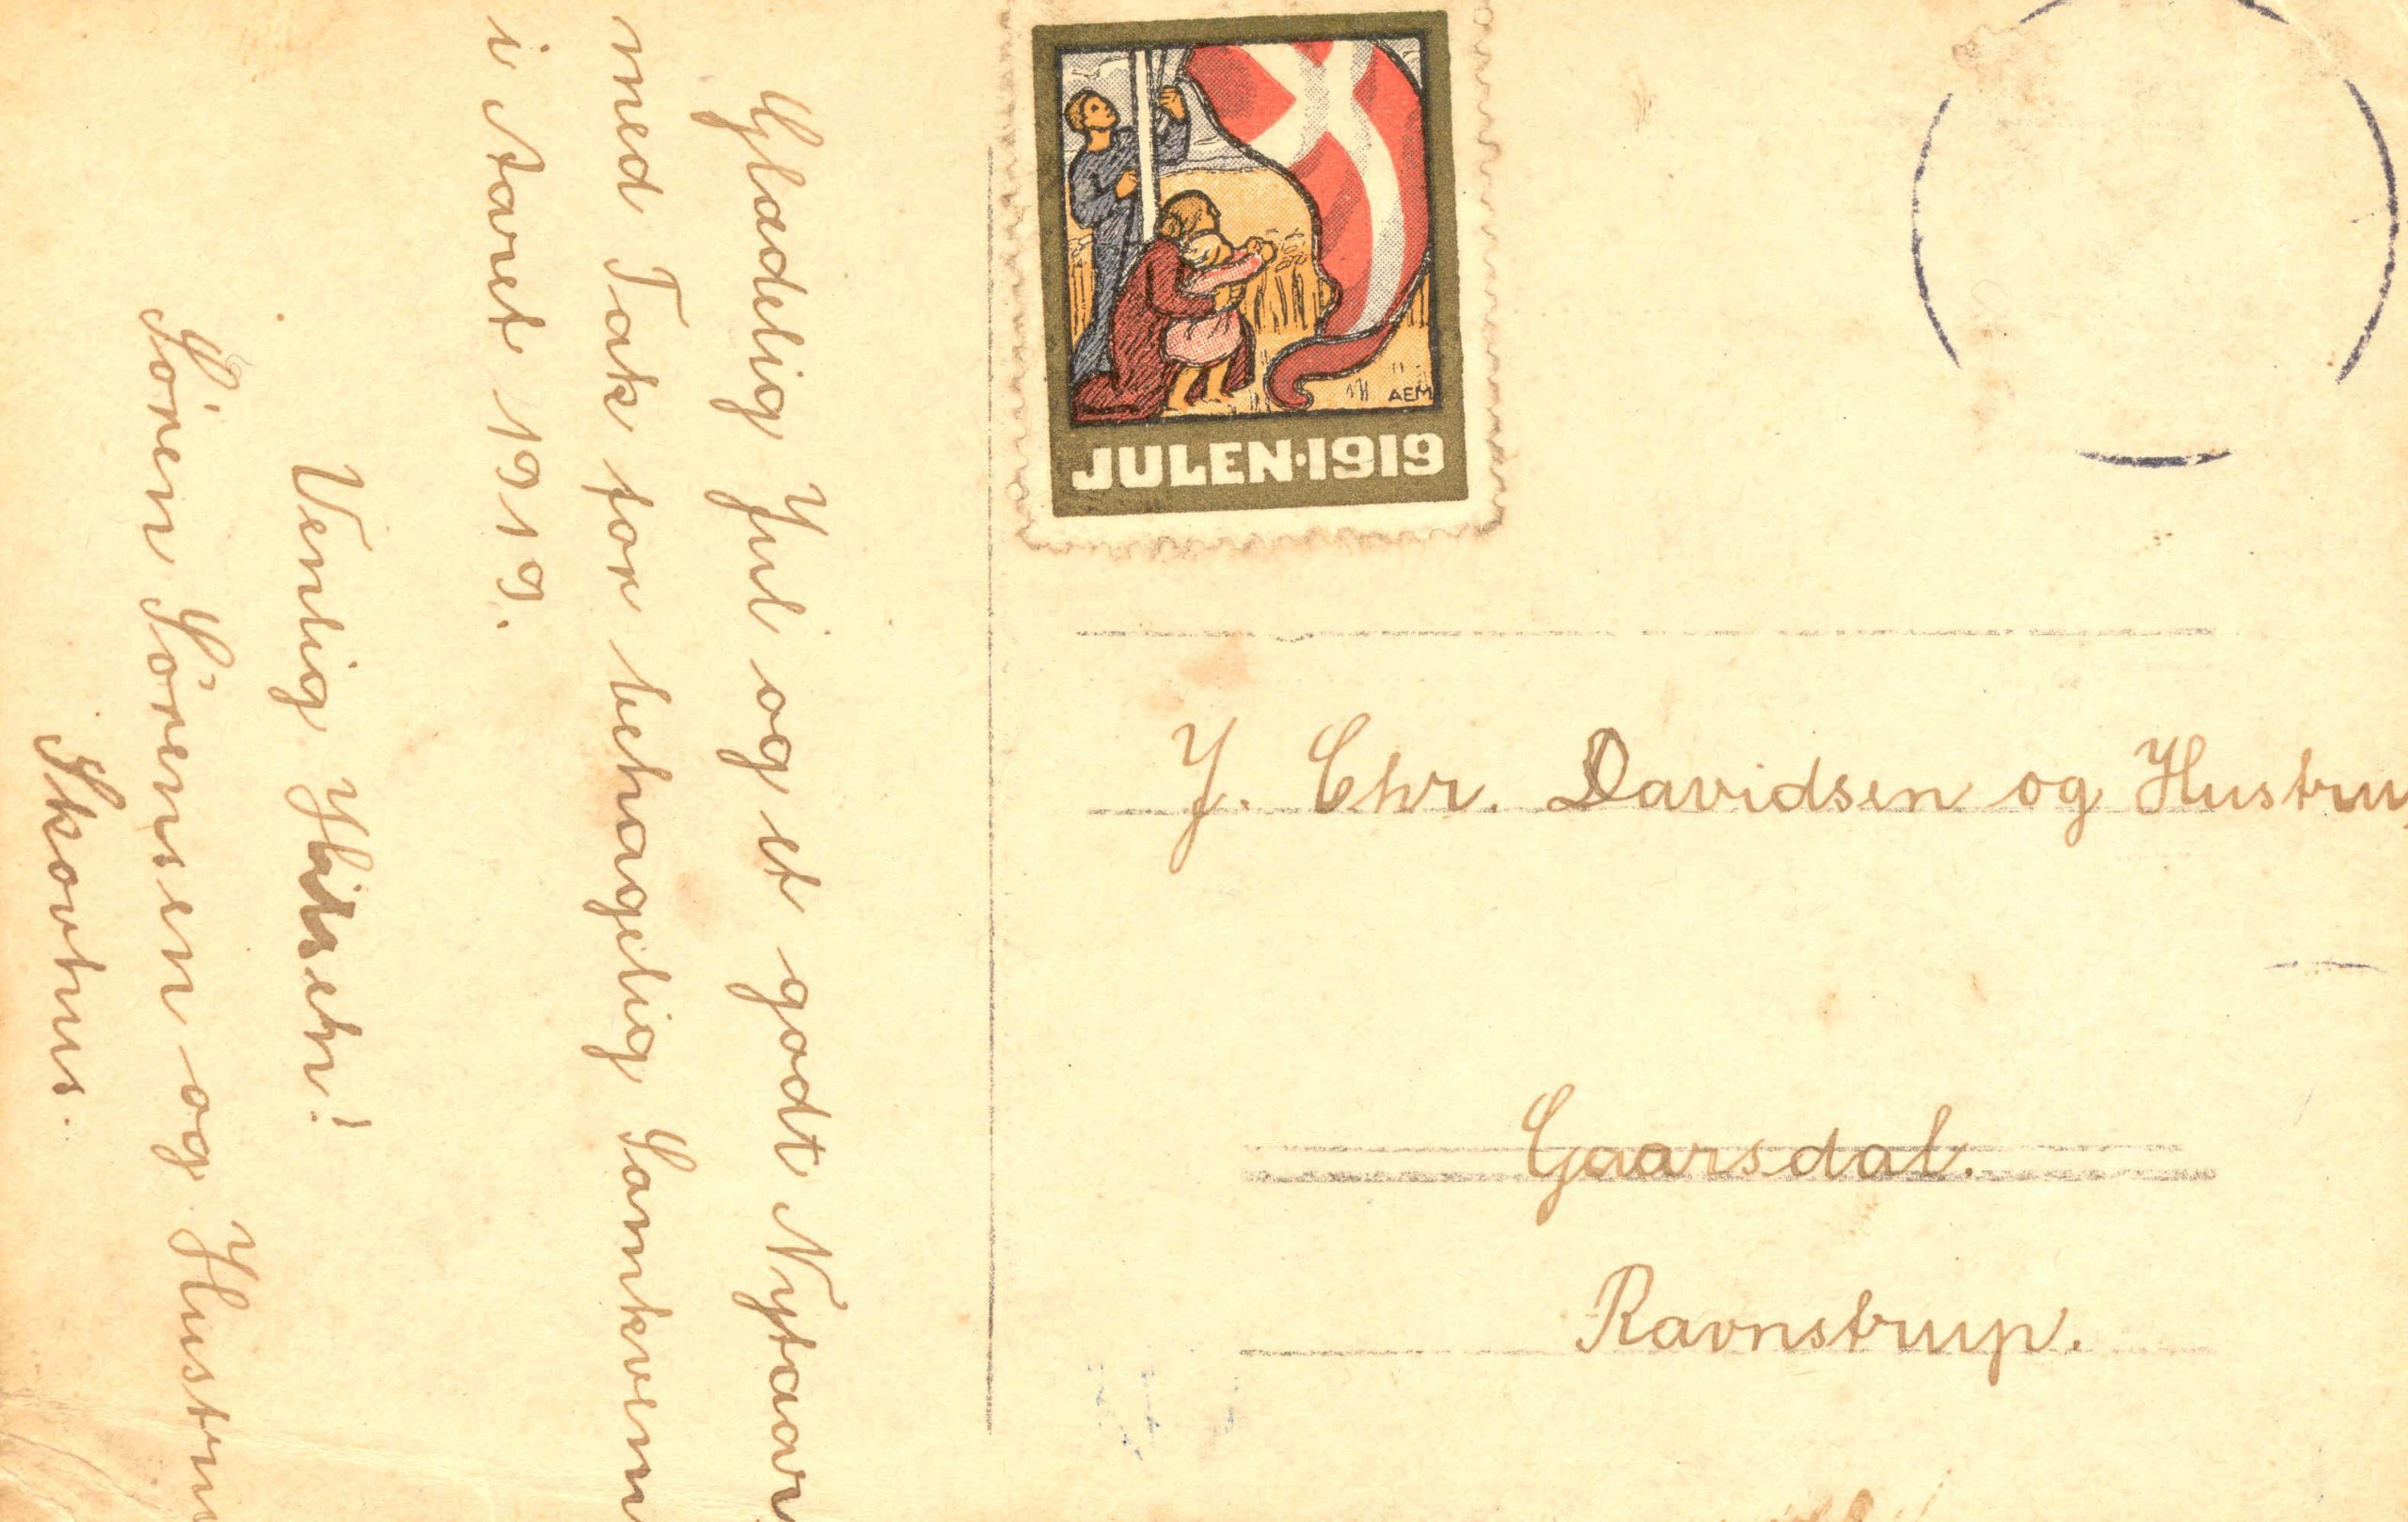 Glædelig Jul og et godt Nytaar
med Tak for behagelig Samkvem
i Aaret 1919.
Venlig Hilsen!
Sören Sörensen og Hustru
Skovhus.
AEM
JULEN·1919
J. Chr. Davidsen og Hustru
Gaarsdal.
Ravnstrup.